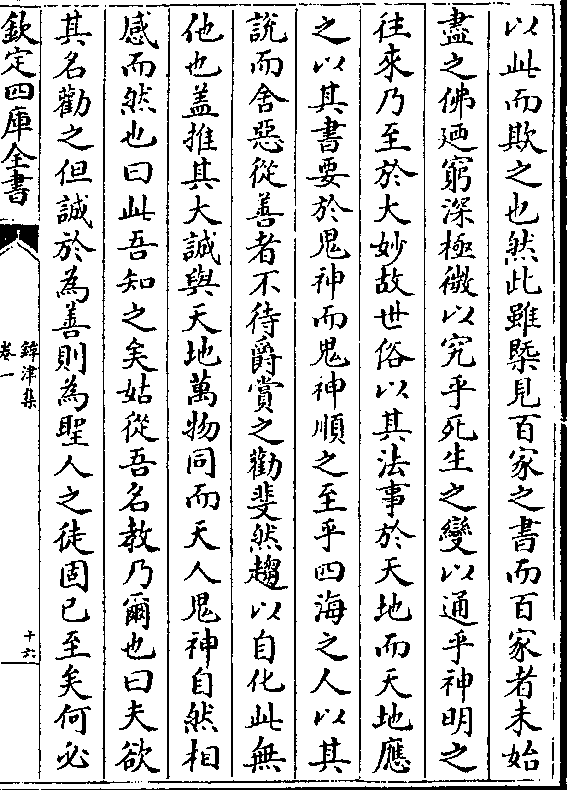 以此而欺之也然此雖槩見百家之書而百家者未始
盡之佛廼窮深極微以究乎死生之變以通乎神明之
往來乃至於大妙故世俗以其法事於天地而天地應
之以其書要於鬼神而鬼神順之至乎四海之人以其
說而舍惡從善者不待爵賞之勸斐然趨以自化此無
他也盖推其大誠與天地萬物同而天人鬼神自然相
感而然也曰此吾知之矣姑從吾名教乃爾也曰夫欲
其名勸之但誠於為善則為聖人之徒固已至矣何必
欽定四庫全書
鐔津集
卷一
十六